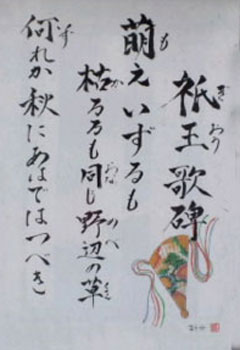 祇王歌碑
萌えいずるも
枯るるも同じ野辺の草
何れか秋にあはではつべき